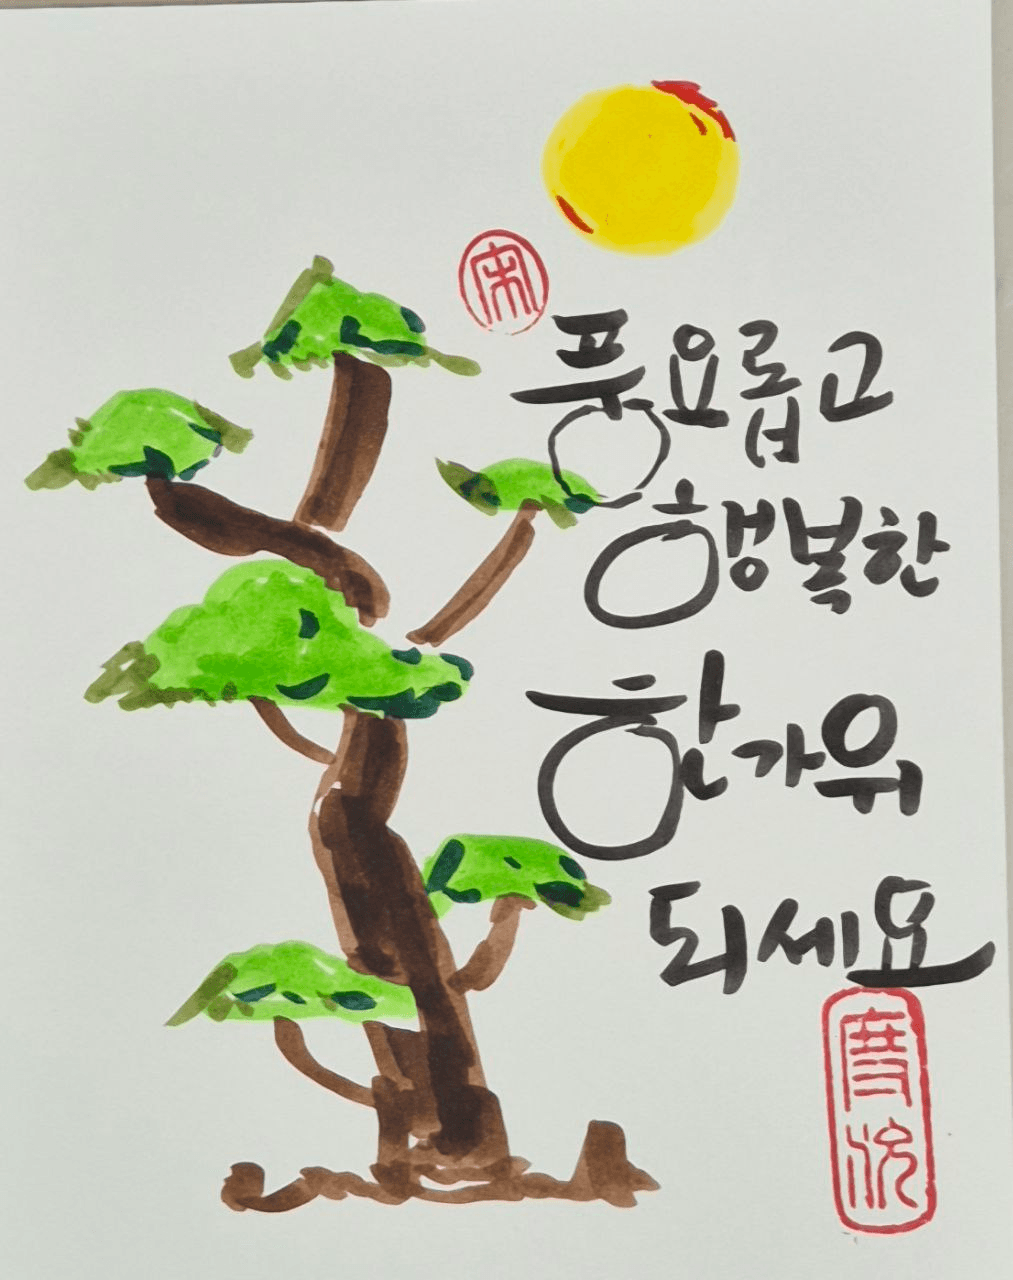 宋
풍요롭고
행복한
한가위
되세요